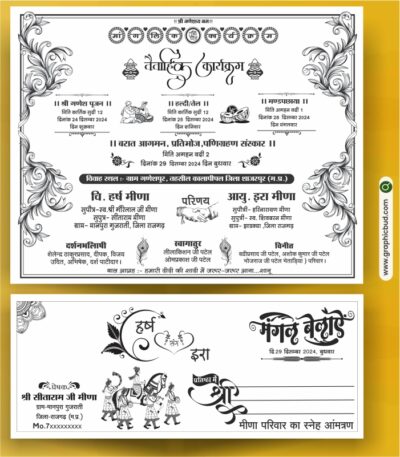 ॥ श्री गणेशाय नमः ॥
मांगलिक कार्यक्रम
वैवाहिक कार्यक्रम
।। श्री गणेश पूजन ।।
मिति कार्तिक सुदी 12
दिनांक 24 दिसम्बर 2024
दिन शुक्रवार
।। हल्दी/तेल ।।
मिति कार्तिक सुदी 13
दिनांक 25 दिसम्बर 2024
दिन शनिवार
।। मण्डपाछाया ।।
मिति अगहन वदी 1
दिनांक 28 दिसम्बर 2024
दिन मंगलवार
।। बरात आगमन, प्रतिभोज,पाणिग्रहण संस्कार ।।
मिति अगहन वदीं 2
दिनांक 29 दिसम्बर 2024 दिन बुधवार
विवाह स्थल : ग्राम गणेशपुर, तहसील कालापीपल जिला शाजापुर (म.प्र.)
चि. हर्ष मीणा
सुपौत्र-स्व.श्री मोरिलाल जी मीणा
सुपुत्र- सीताराम मीणा
ग्राम-मानपुरा गुजराती, जिला राजगढ़
परिणय
आयु. इरा मीणा
सुपौत्री- हरिनारायण मीणा
सुपुत्री- स्व. शिवनारायण मीणा
ग्राम- झाड़क्या ,जिला राजगढ़
दर्शनभिलाषी
शैलेन्द्र ठाकुरप्रसाद, दीपक, विजय
उदित, अभिषेक, दर्श पाटीदार।
स्वागातुर
लीलाकिशन जी पटेल
ओमप्रकाश जी पटेल
विनीत
बद्रीप्रसाद जी पटेल, अशोक कुमार जी पटेल
भोजराज जी पटेल
बाल आग्रह : हमारी दीदी की शादी में जरूर-जरूर आना...
www.graphicbud.com
हर्ष
इरा
मंगल बेलाऐं
दि.29 दिसम्बर 2024, बुधवार
प्रेषक
श्री सीताराम जी मीणा
ग्राम-मानपुरा गुजराती
जिला-राजगढ़ (म.प्र.)
Mo.7xxxxxxxxx
प्रतिष्ठा में
श्री
मीणा परिवार का स्नेह आंमत्रण